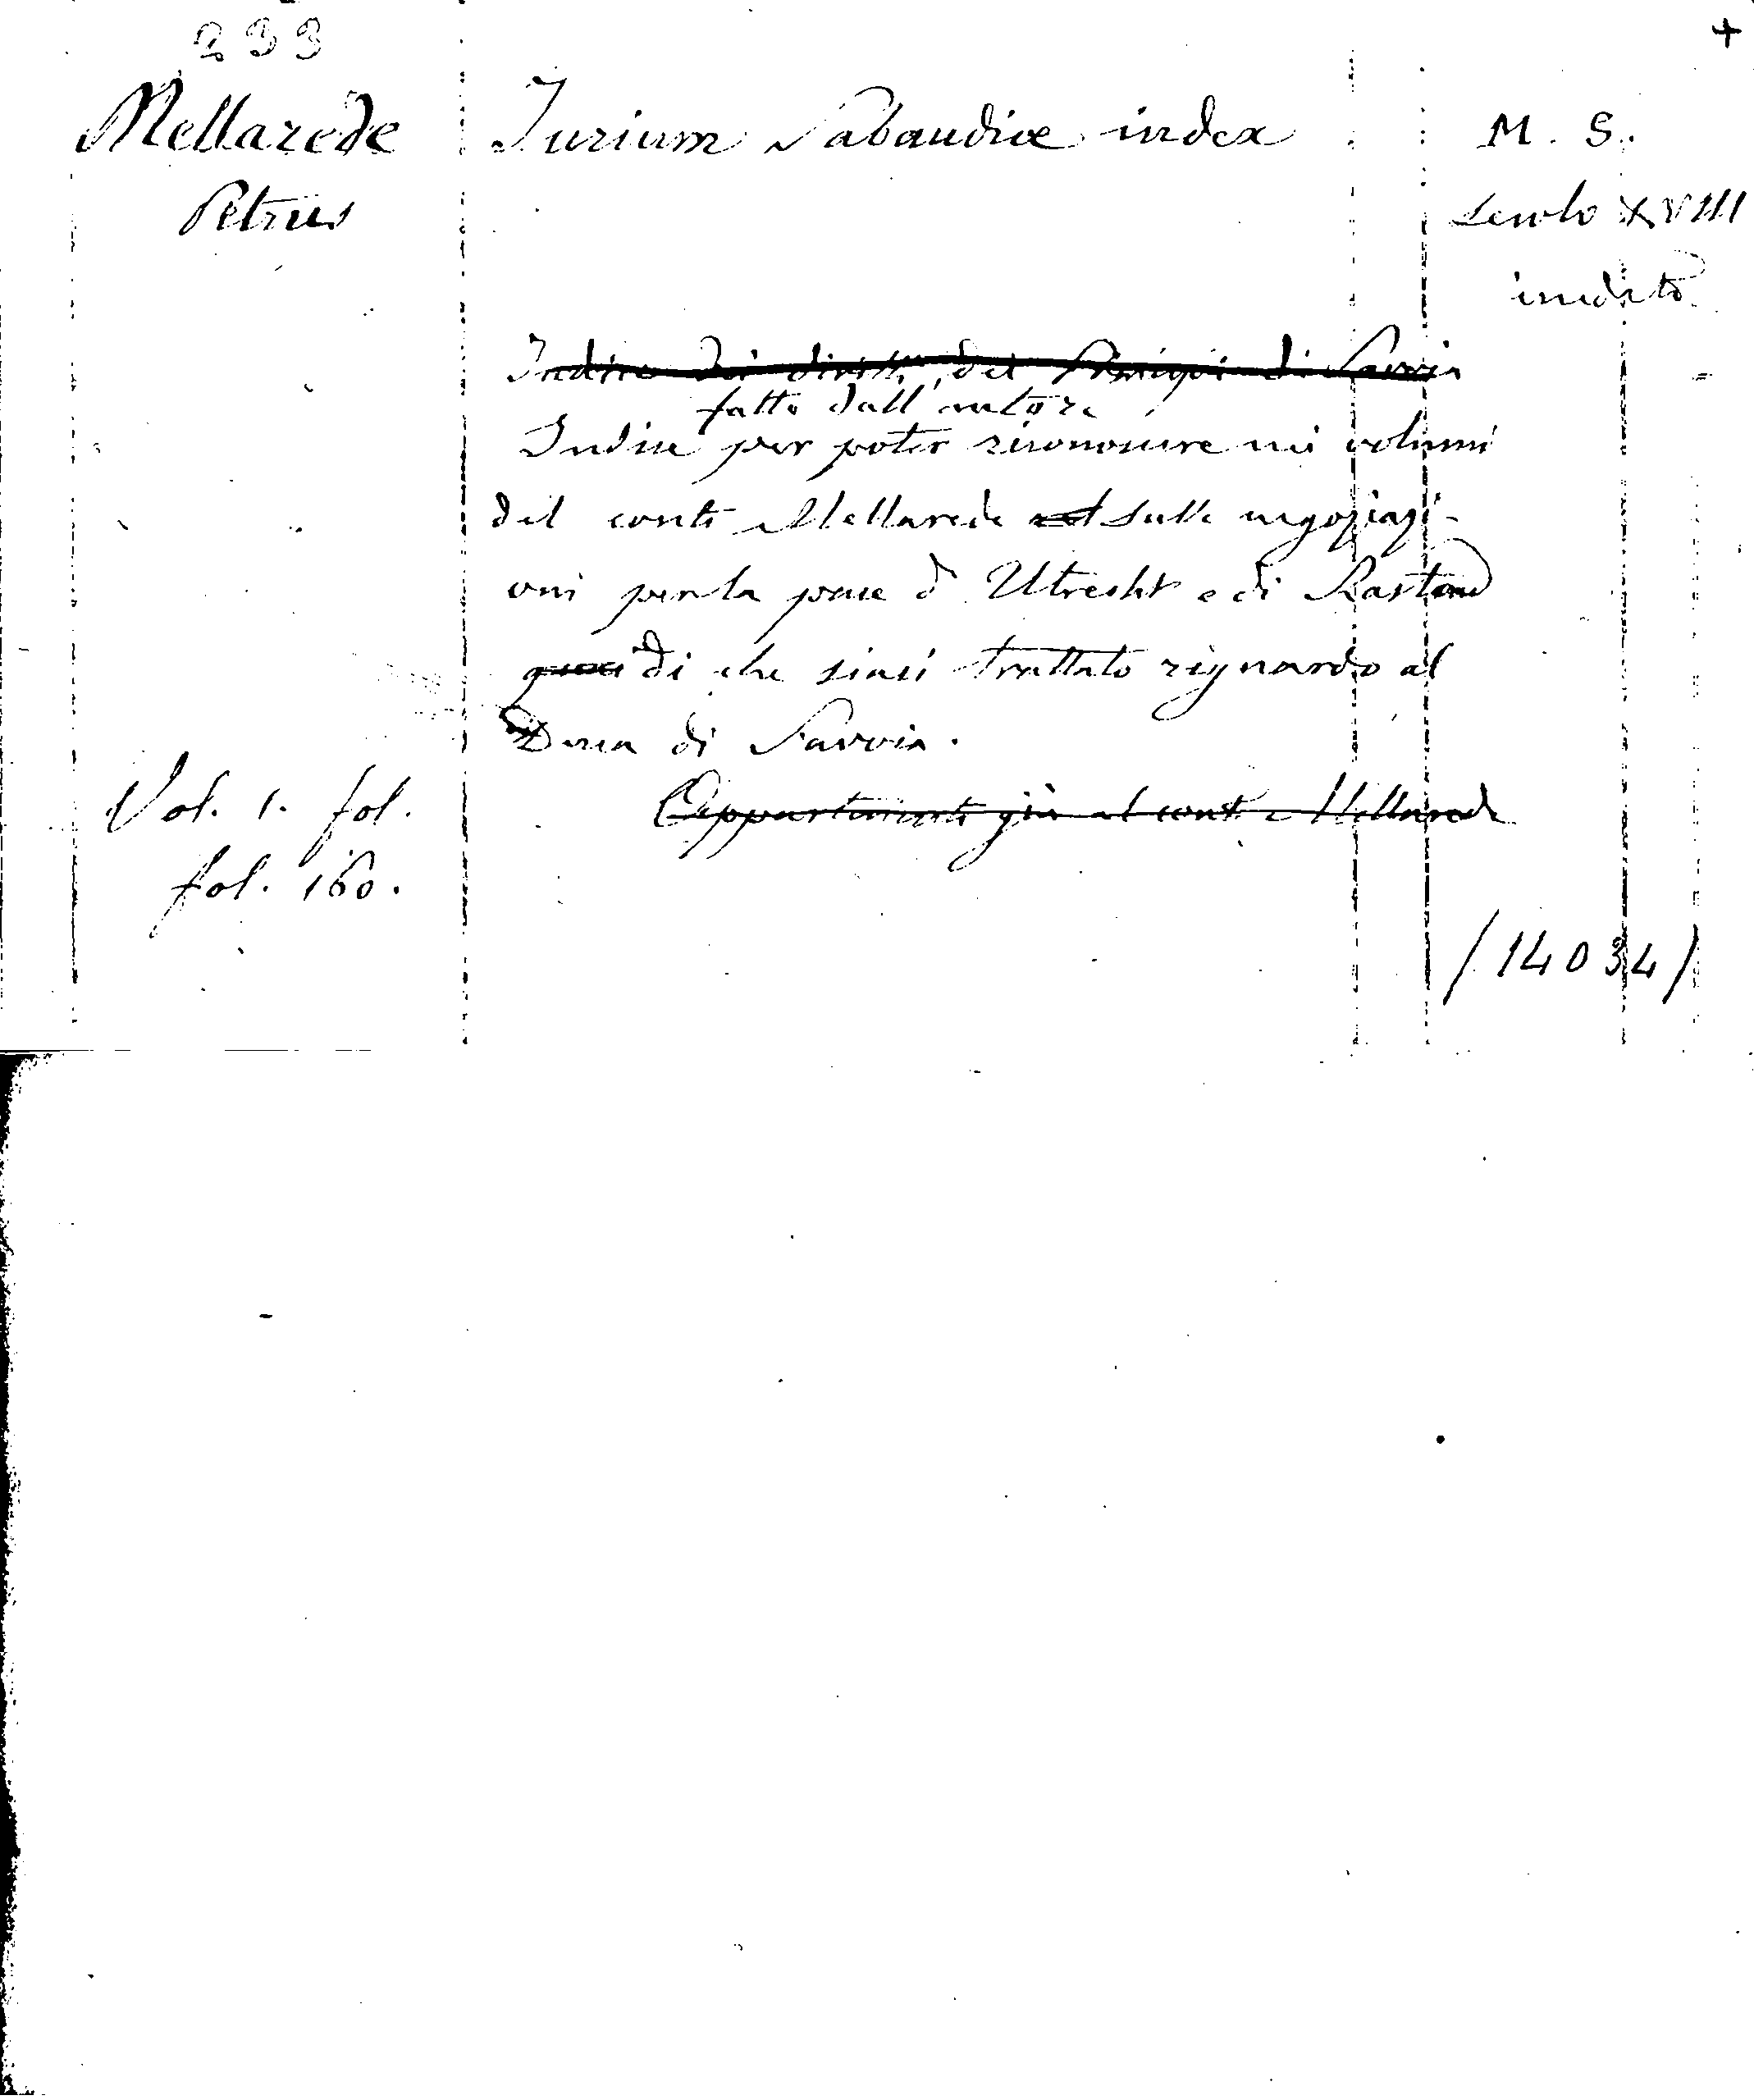 233
+
Mellarede
Petrus
Jurium Sabaudiæ index
M. S.
secolo XVIII
inedito
Indice dei diritti dei Principi di Savoia
fatto dall'autore
Indice per poter riconoscere nei volumi
del conte Mellarede sulle negoziazi-
oni per la pace d'Utrecht e di Rastad
di che siasi trattato riguardo al
Duca di Savoia.
Vol. 1. fol.
fol. 160.
(Appartenente già al conte Mellarede
(14034)